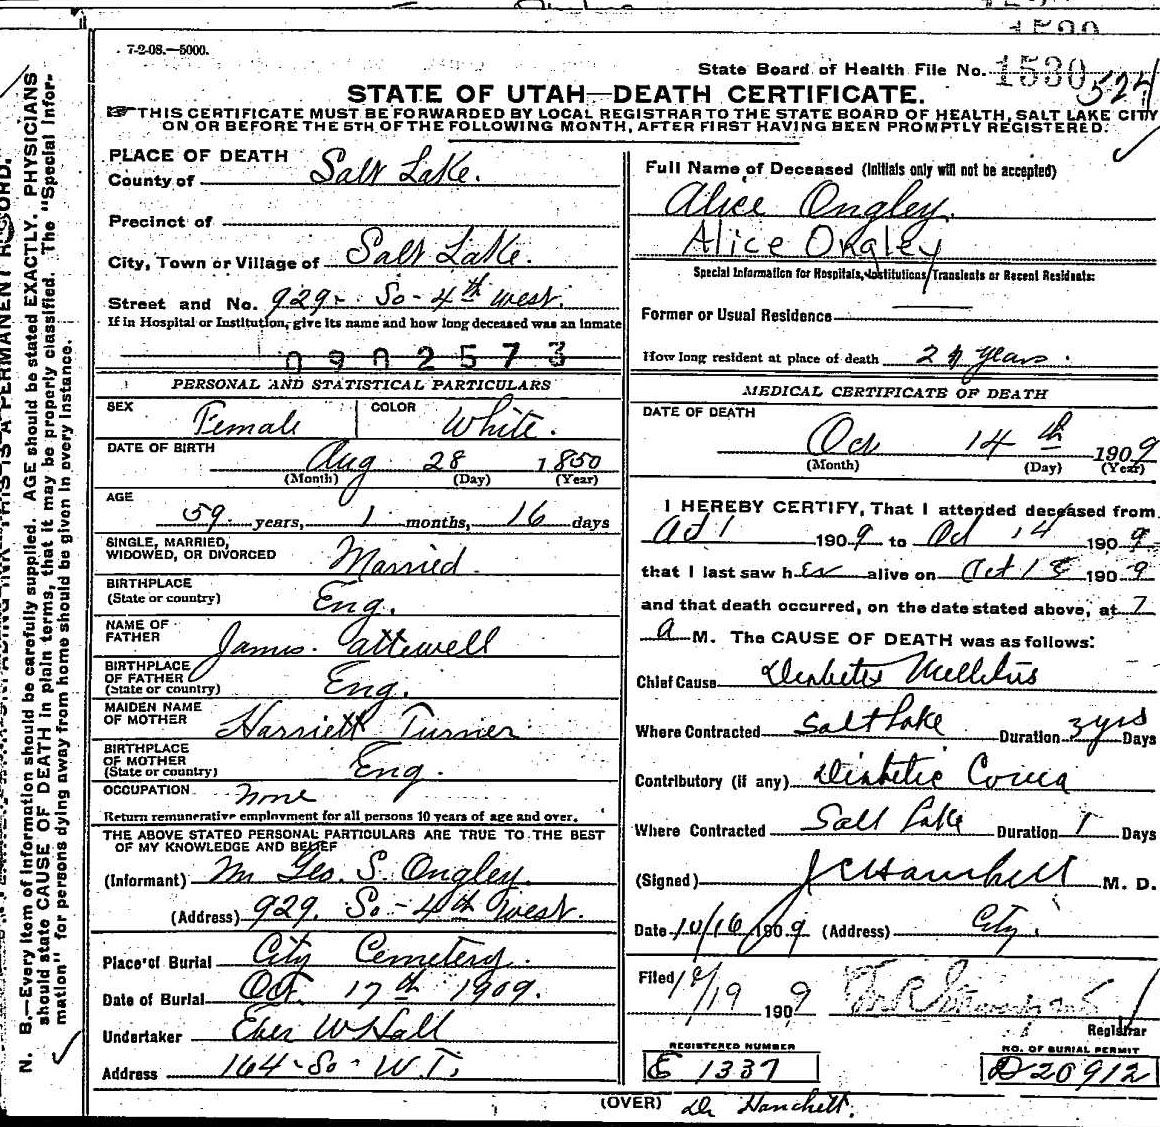 7-2-08.—5000.
State Board of Health File No. 1530 524
STATE OF UTAH—DEATH CERTIFICATE.
THIS CERTIFICATE MUST BE FORWARDED BY LOCAL REGISTRAR TO THE STATE BOARD OF HEALTH, SALT LAKE CITY
ON OR BEFORE THE 5TH OF THE FOLLOWING MONTH, AFTER FIRST HAVING BEEN PROMPTLY REGISTERED.
PLACE OF DEATH
County of Salt Lake.
Precinct of
City, Town or Village of Salt Lake.
Street and No. 929- So-4th west.
If in Hospital or Institution, give its name and how long deceased was an inmate
0902573
PERSONAL AND STATISTICAL PARTICULARS
SEX Female COLOR White.
DATE OF BIRTH Aug 28 1850
(Month) (Day) (Year)
AGE
59 years, 1 months, 16 days
SINGLE, MARRIED,
WIDOWED, OR DIVORCED Married.
BIRTHPLACE
(State or country) Eng.
NAME OF
FATHER James. Attewell
BIRTHPLACE
OF FATHER
(State or country) Eng.
MAIDEN NAME
OF MOTHER Harriett Turner
BIRTHPLACE
OF MOTHER
(State or country) Eng.
OCCUPATION none
Return remunerative employment for all persons 10 years of age and over.
THE ABOVE STATED PERSONAL PARTICULARS ARE TRUE TO THE BEST
OF MY KNOWLEDGE AND BELIEF
(Informant) Mr Geo. S. Ongley.
(Address) 929. So-4th west.
Place of Burial City Cemetery.
Date of Burial Oct. 17th 1909.
Undertaker Eber W Hall
Address 164-So-W.T.
Full Name of Deceased (Initials only will not be accepted)
Alice Ongley.
Alice Ongley
Special Information for Hospitals, Institutions, Transients or Recent Residents:
Former or Usual Residence
How long resident at place of death years.
MEDICAL CERTIFICATE OF DEATH
DATE OF DEATH
Oct 14th 1909
(Month) (Day) (Year)
I HEREBY CERTIFY, That I attended deceased from
Oct 1 1909 to Oct 14 1909
that I last saw her alive on Oct 1909
and that death occurred, on the date stated above, at 7
a M. The CAUSE OF DEATH was as follows:
Chief Cause Diabetes Mellitus
Where Contracted Salt Lake Duration 3 yrs Days
Contributory (if any) Diabetic Coma
Where Contracted Salt Lake Duration 1 Days
(Signed) J C Hanchett M. D.
Date 10/16/1909 (Address) City.
Filed 10/19 1909
Registrar
REGISTERED NUMBER
E 1337
NO. OF BURIAL PERMIT
D 20912
(OVER) Dr Hanchett.
N. B.—Every item of information should be carefully supplied. AGE should be stated EXACTLY. PHYSICIANS
should state CAUSE OF DEATH in plain terms, that it may be properly classified. The "Special Infor-
mation" for persons dying away from home should be given in every instance.